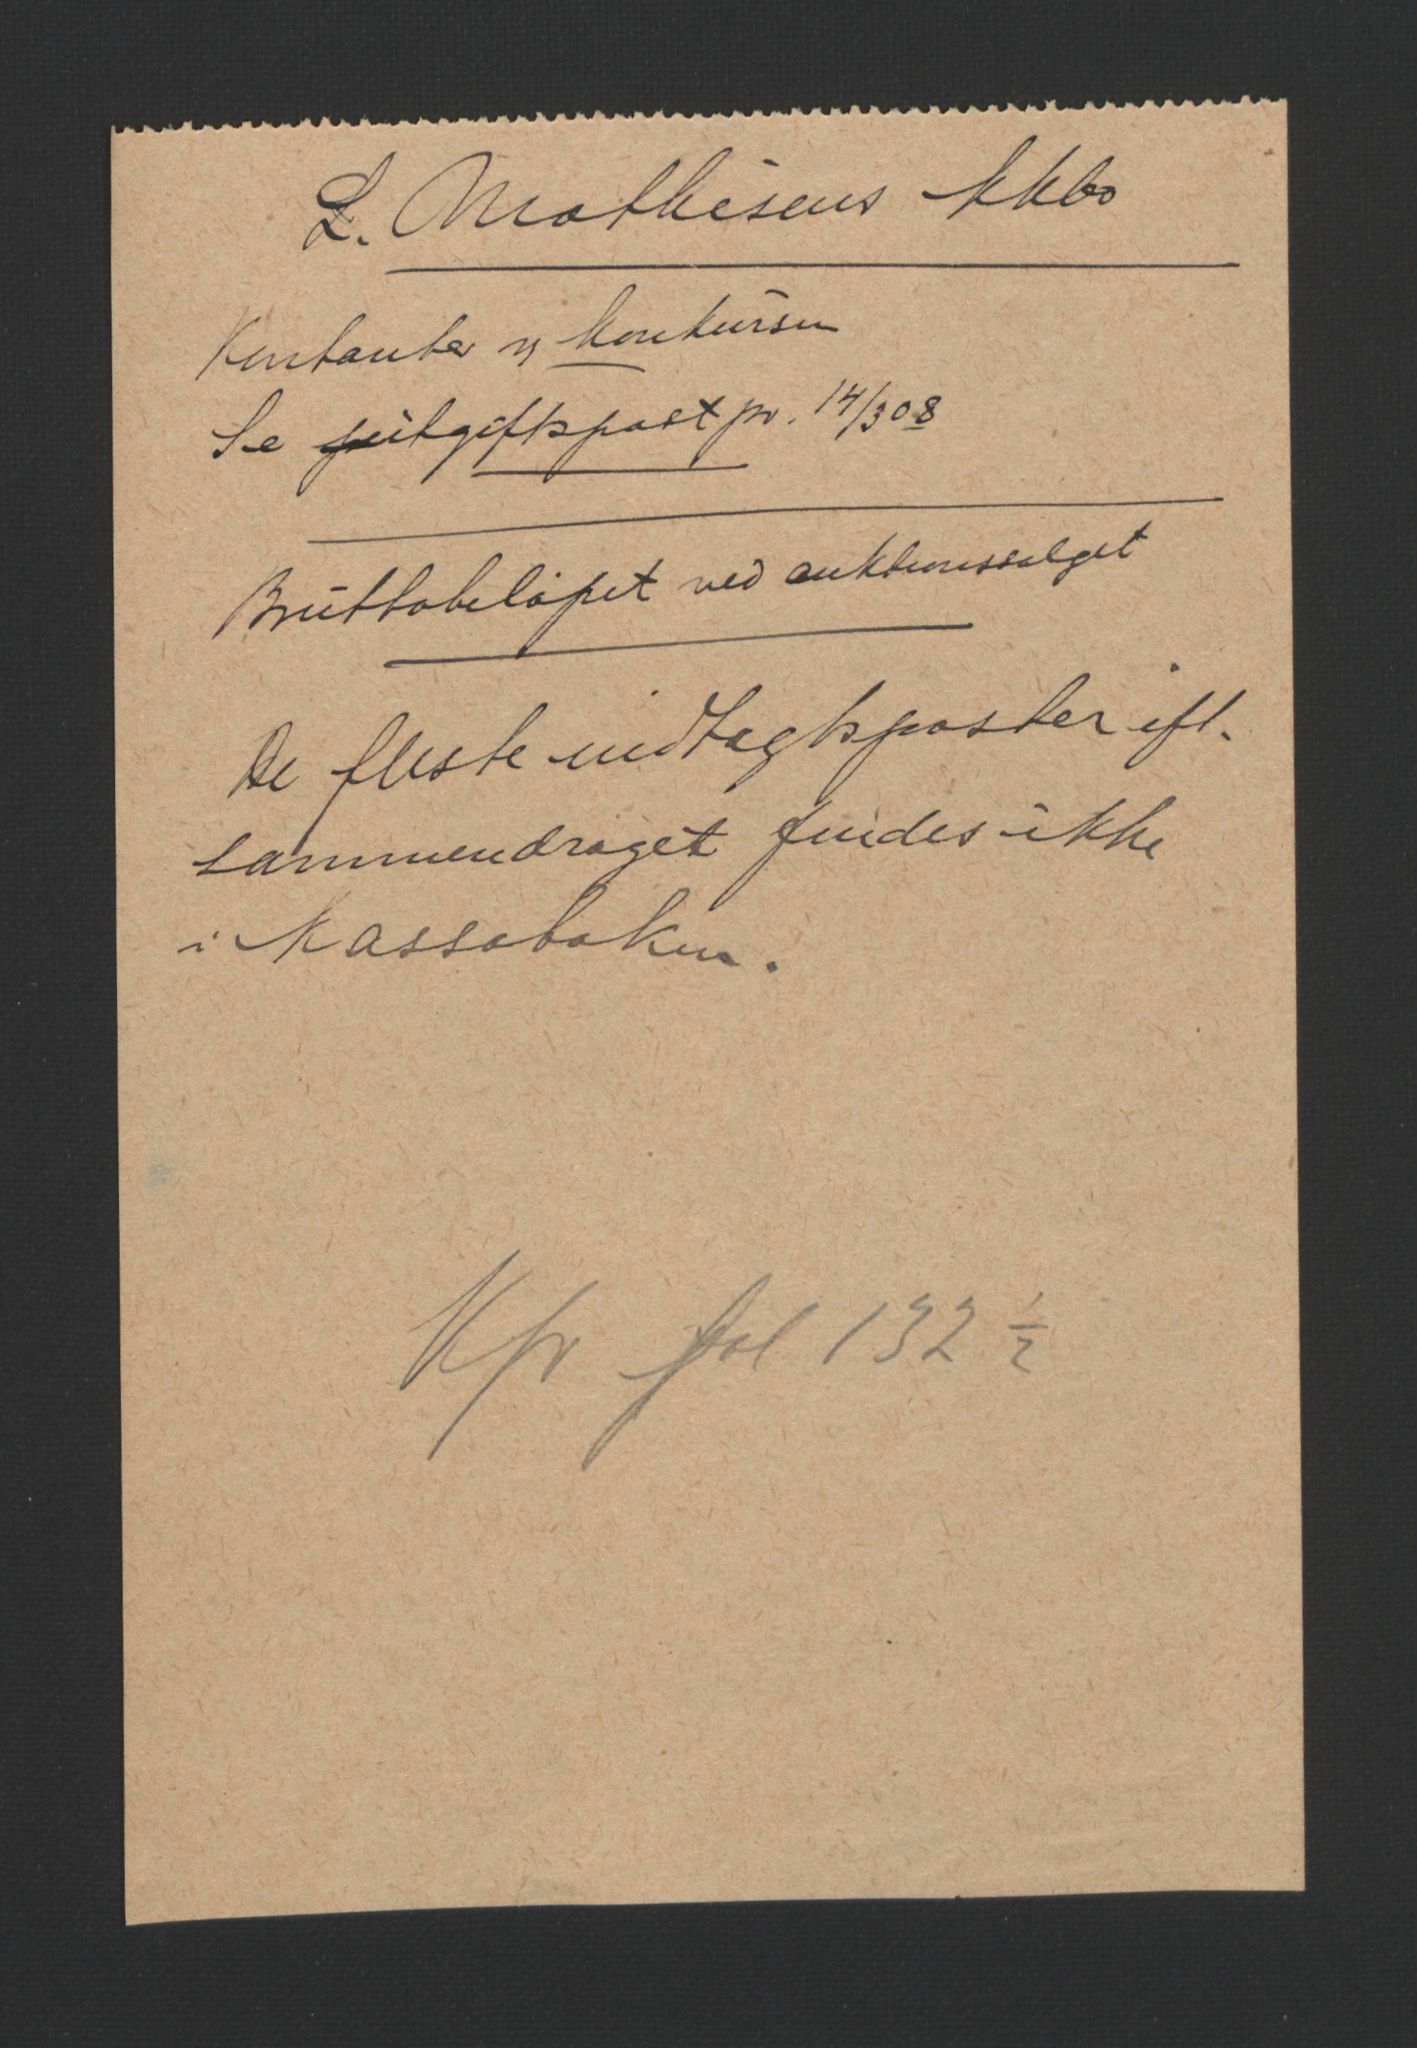 L. Mathisens kkbo
Kontanter v konkursen
Se utgiftspost pr. 14/3 08
Bruttobeløpet ved auktionssalget
De fleste indtægtsposter ifl.
sammendraget findes ikke
i kassaboken.
Kpr fol 132 ½